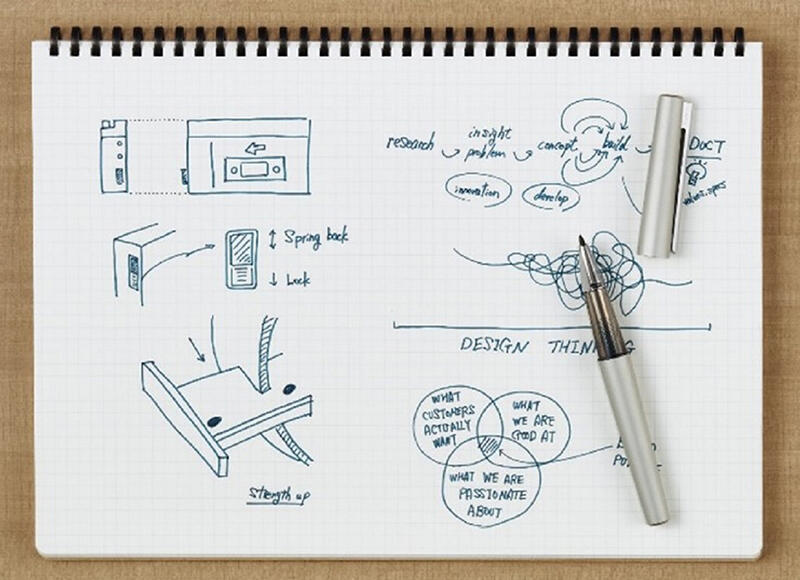 research
insight
problem
concept
build
DUCT
innovation
develop
Spring back
Lock
DESIGN
WHAT
CUSTOMERS
ACTUALLY
WANT
WHAT
WE ARE
GOOD AT
WHAT WE ARE
PASSIONATE
ABOUT
Strength up